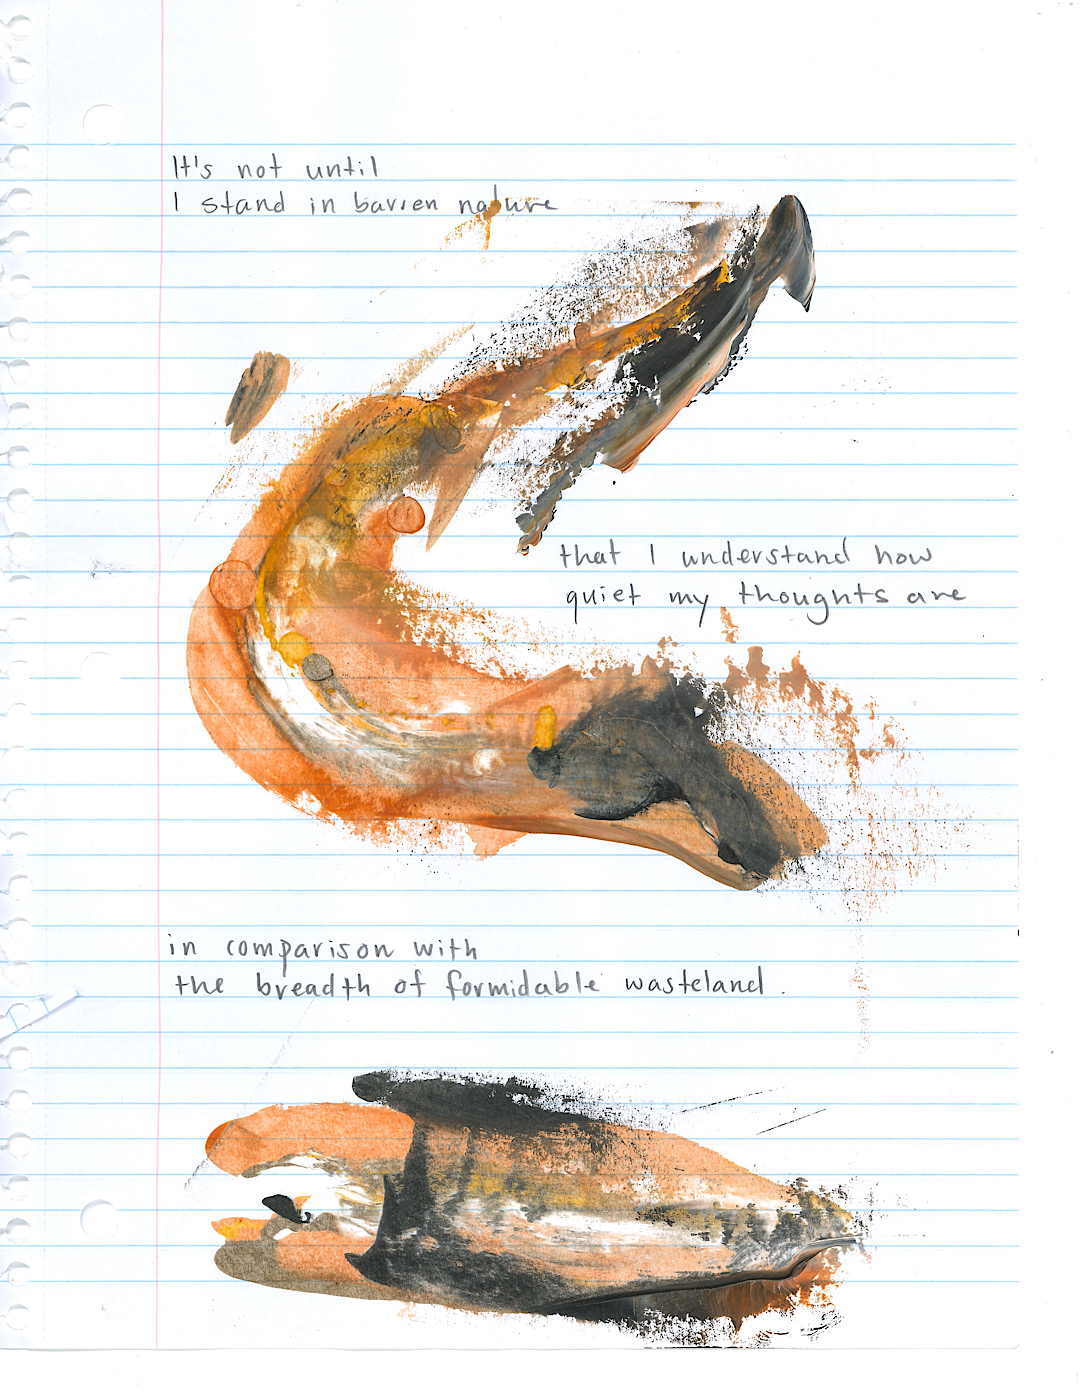 It's not until
I stand in barren nature
that I understand how
quiet my thoughts are
in comparison with
the breadth of formidable wasteland.